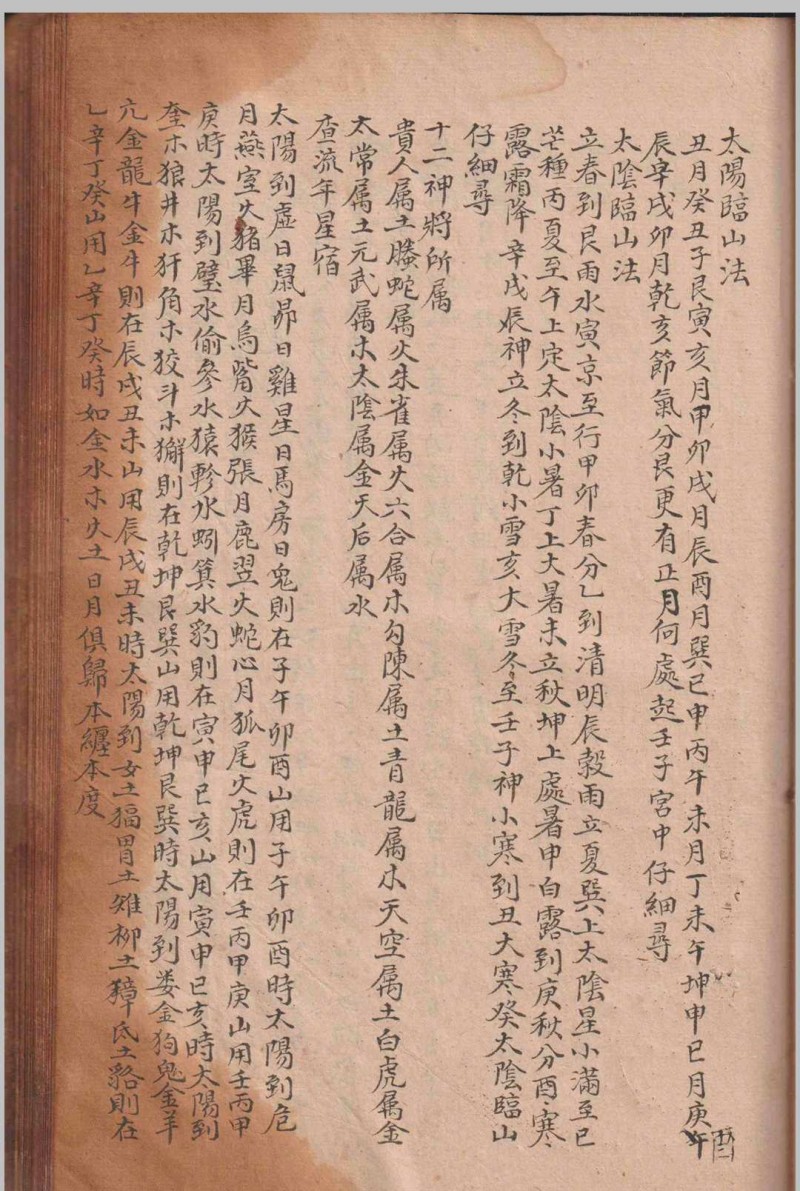 太陽臨山法
丑月癸丑子艮寅亥月甲卯戌月辰酉月巽巳申丙午未月丁未午坤申巳月庚午酉
辰辛戌卯月乾亥節氣分艮更有正月何處起壬子宮中仔細尋
太陰臨山法
立春到艮雨水寅京至行甲卯春分乙到清明辰穀雨立夏巽上太陰星小滿至巳
芒種丙夏至午上定太陰小暑丁上大暑未立秋坤上處暑申白露到庚秋分酉寒
露霜降辛戌娠神立冬到乾小雪亥大雪冬至壬子神小寒到丑大寒癸太陰臨山
仔細尋
十二神將所属
貴人属土螣蛇属火朱雀属火六合属木勾陳属土青龍属木天空属土白虎属金
太常属土元武属木太陰属金天后属水
查流年星宿
太陽到虛日鼠昴日雞星日馬房日兔則在子午卯酉山用子午卯酉時太陽到危
月燕室火豬畢月烏觜火猴張月鹿翌火蛇心月狐尾火虎則在壬丙甲庚山用壬丙甲
庚時太陽到壁水偷參水猿軫水蚓箕水豹則在寅申巳亥山用寅申巳亥時太陽到
奎木狼井木犴角木狡斗木獬則在乾坤艮巽山用乾坤艮巽時太陽到娄金狗鬼金羊
亢金龍牛金牛則在辰戌丑未山用辰戌丑未時太陽到女土猵胃土雉柳土獐氐土貉則在
乙辛丁癸山用乙辛丁癸時如金水木火土日月俱歸本纏本度